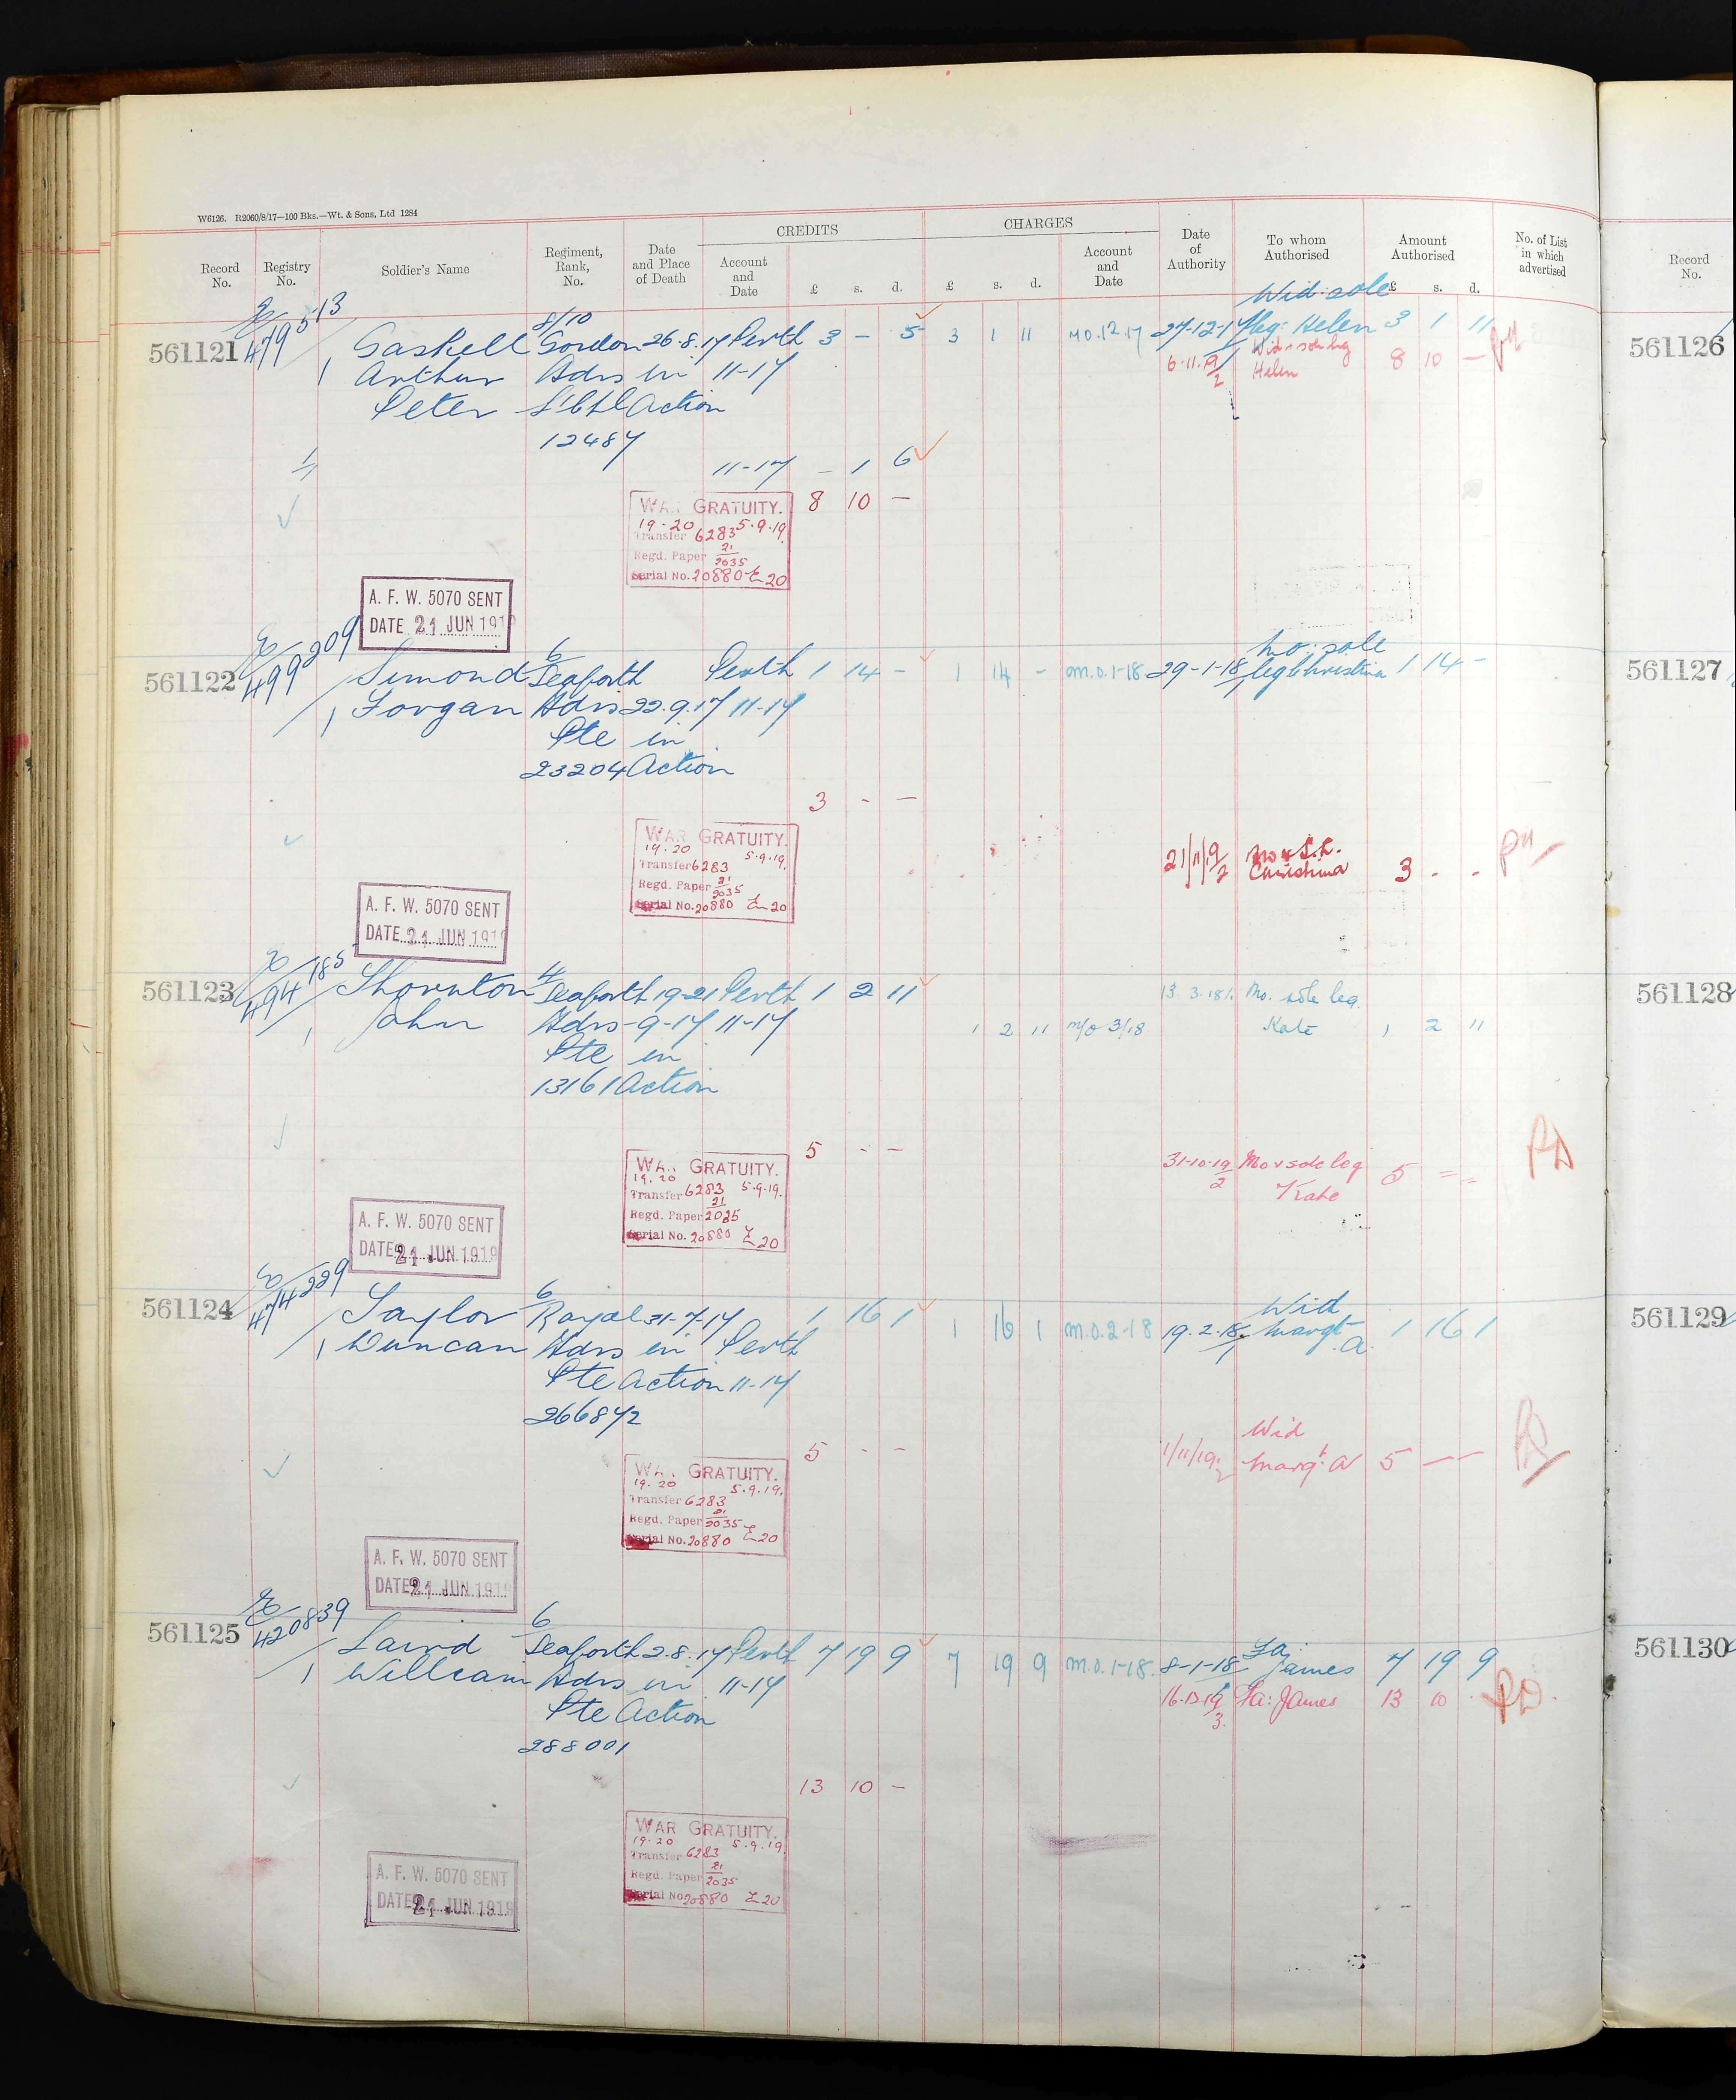 W6126. R2060/8/17—100 Bks.—Wt. & Sons, Ltd 1284
CREDITS CHARGES
Record No. Registry No. Soldier's Name Regiment, Rank, No. Date and Place of Death Account and Date £ s. d. £ s. d. Account and Date Date of Authority To whom Authorised Amount Authorised £ s. d. No. of List in which advertised
Record No.
E/479513 8/10 Wid: sole
561121 1 Gaskell Gordon 26.8.17 Perth 3 - 5 3 1 11 M.O. 12.17 27-12-17 leg: Helen 3 1 11
561126
Arthur Hdrs in 11-17 6.11.19/2 Wid & sole leg Helen 8 10 -
Peter L/Cpl Action
12487
11-17 - 1 6
WAR GRATUITY. 8 10 -
19-20 5.9.19.
Transfer 6283
Regd. Paper 21/2035
Serial No. 20880 E 20
A. F. W. 5070 SENT
DATE 21 JUN 191
E/499209 6 Mo: sole
561122 1 Simond Seaforth Perth 1 14 - 1 14 - M.O. 1-18 29-1-18/1 leg Christina 1 14 -
561127
Forgan Hdrs 22.9.17 11-17
Pte in
23204 Action
3 - -
WAR GRATUITY.
19-20 5.9.19.
Transfer 6283
Regd. Paper 21/2035
Serial No. 20880 E 20
21/11/19/2 Mo & S.L. Christina 3 - -
A. F. W. 5070 SENT
DATE 21 JUN 191
E/494185 4
561123 1 Thornton Seaforth 19-21 Perth 1 2 11 13.3.18/1 Mo. sole leg.
561128
John Hdrs -9-17 11-17 1 2 11 M/O 3/18 Kate 1 2 11
Pte in
13161 Action
WAR GRATUITY. 5 - - 31-10-19/2 Mo & sole leg Kate 5 = = PD
19-20 5.9.19.
Transfer 6283
Regd. Paper 21/2035
Serial No. 20880 E 20
A. F. W. 5070 SENT
DATE 21 JUN 1919
E/474229 6 Wid
561124 1 Taylor Royal 31-7-17 1 16 1 1 16 1 M.O. 2-18 19.2.18/1 Margt A. 1 16 1
561129
Duncan Hdrs in Perth
Pte Action 11-17
266872
5 - - 1/11/19/2 Wid Margt A 5 - -
WAR GRATUITY.
19-20 5.9.19.
Transfer 6283
Regd. Paper 21/2035
Serial No. 20880 E 20
A. F. W. 5070 SENT
DATE 21 JUN 1919
E/420839 6
561125 1 Laird Seaforth 2.8.17 Perth 7 19 9 7 19 9 M.O. 1-18. 8-1-18/1 Fa: James 7 19 9
561130
William Hdrs in 11-17 Fa: James 13 10 - PD.
Pte Action
288001
13 10 -
WAR GRATUITY.
19-20 5.9.19.
Transfer 6283
Regd. Paper 21/2035
Serial No. 20880 E 20
A. F. W. 5070 SENT
DATE 21 JUN 1919